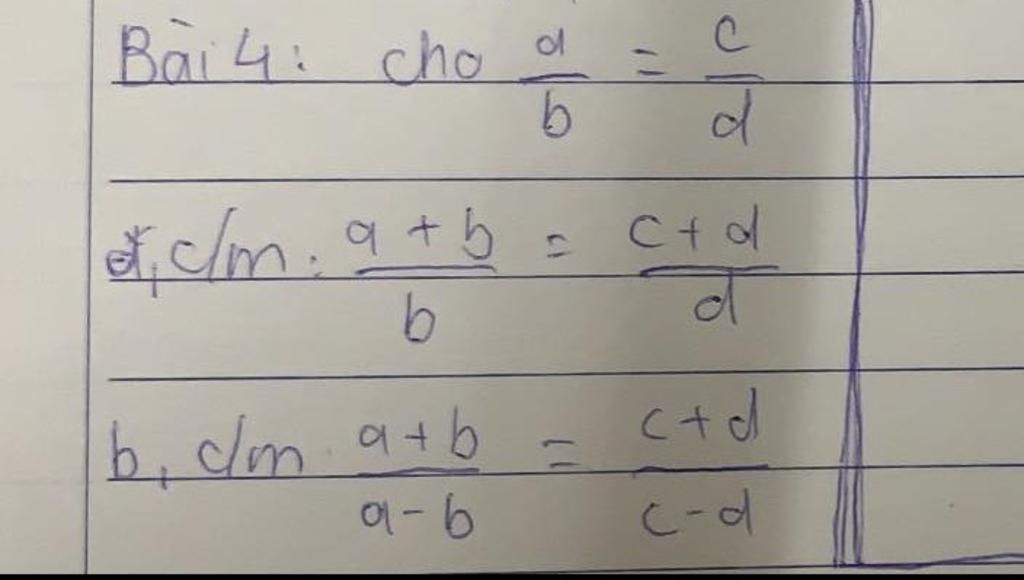 Bài 4: cho a/b = c/d
a, c/m: a+b/b = c+d/d
b, c/m a+b/a-b = c+d/c-d